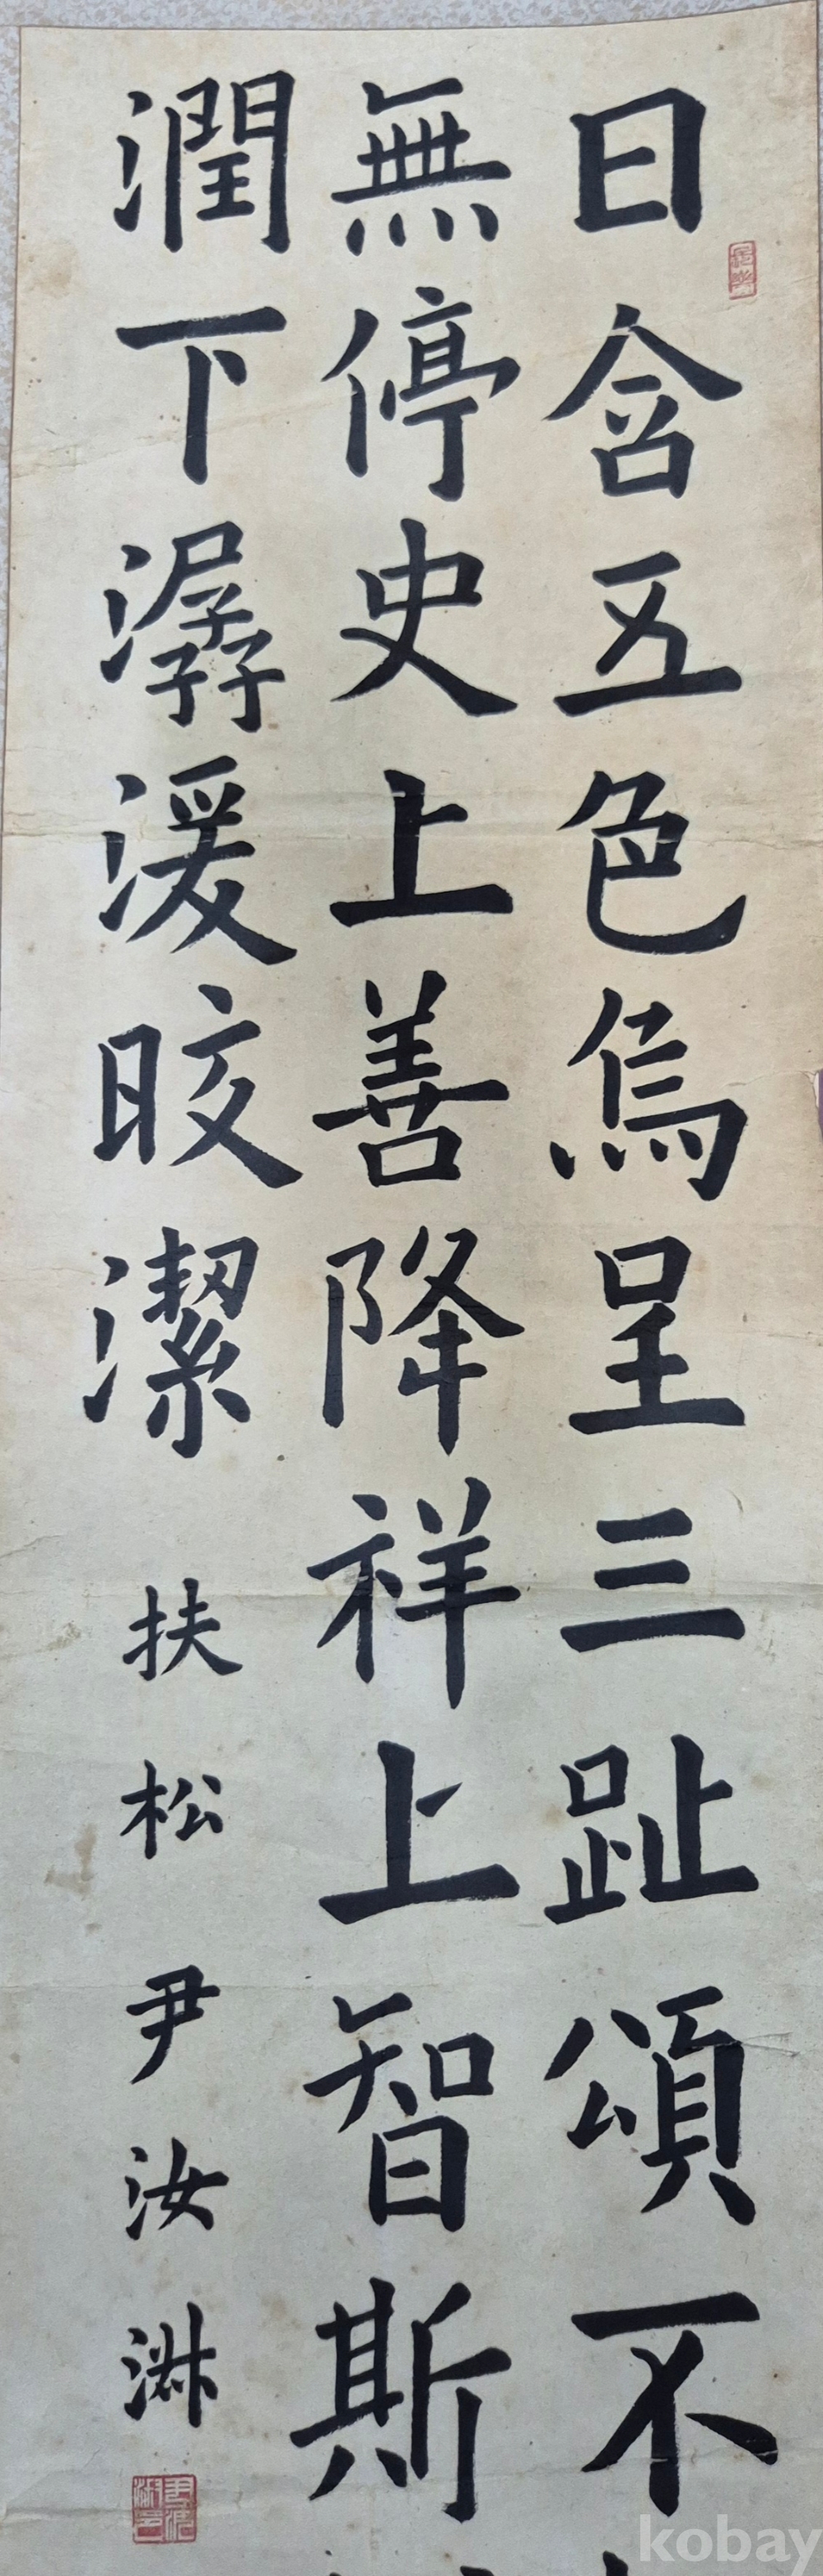 日含五色烏呈三趾頌不
無停史上善降祥上智斯
潤下潺湲皎潔
扶松 尹汝淋
kobay